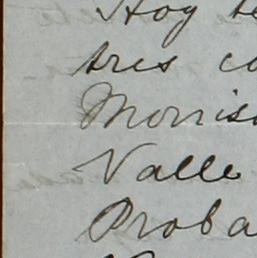 Hoy te
tres co
Morris
Valle
Proba